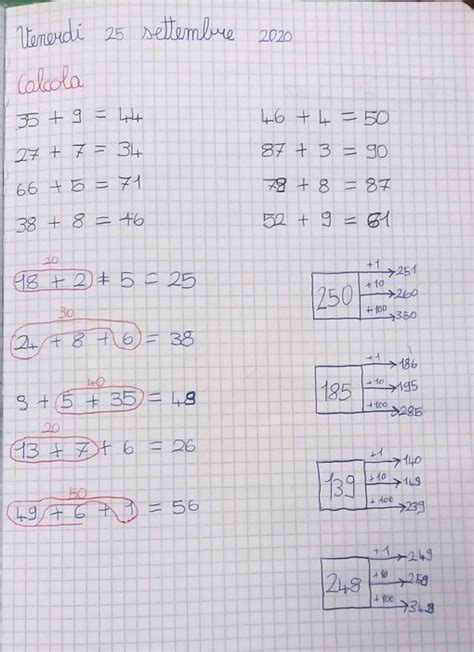 Venerdì 25 settembre 2020
Calcola
35 + 9 = 44
46 + 4 = 50
27 + 7 = 34
87 + 3 = 90
66 + 5 = 71
79 + 8 = 87
38 + 8 = 46
52 + 9 = 61
20
18 + 2 + 5 = 25
30
24 + 8 + 6 = 38
40
9 + 5 + 35 = 49
20
13 + 7 + 6 = 26
50
49 + 6 + 1 = 56
250
+1 251
+10 260
+100 350
185
+1 186
+10 195
+100 285
139
+1 140
+10 149
+100 239
248
+1 249
+10 258
+100 348